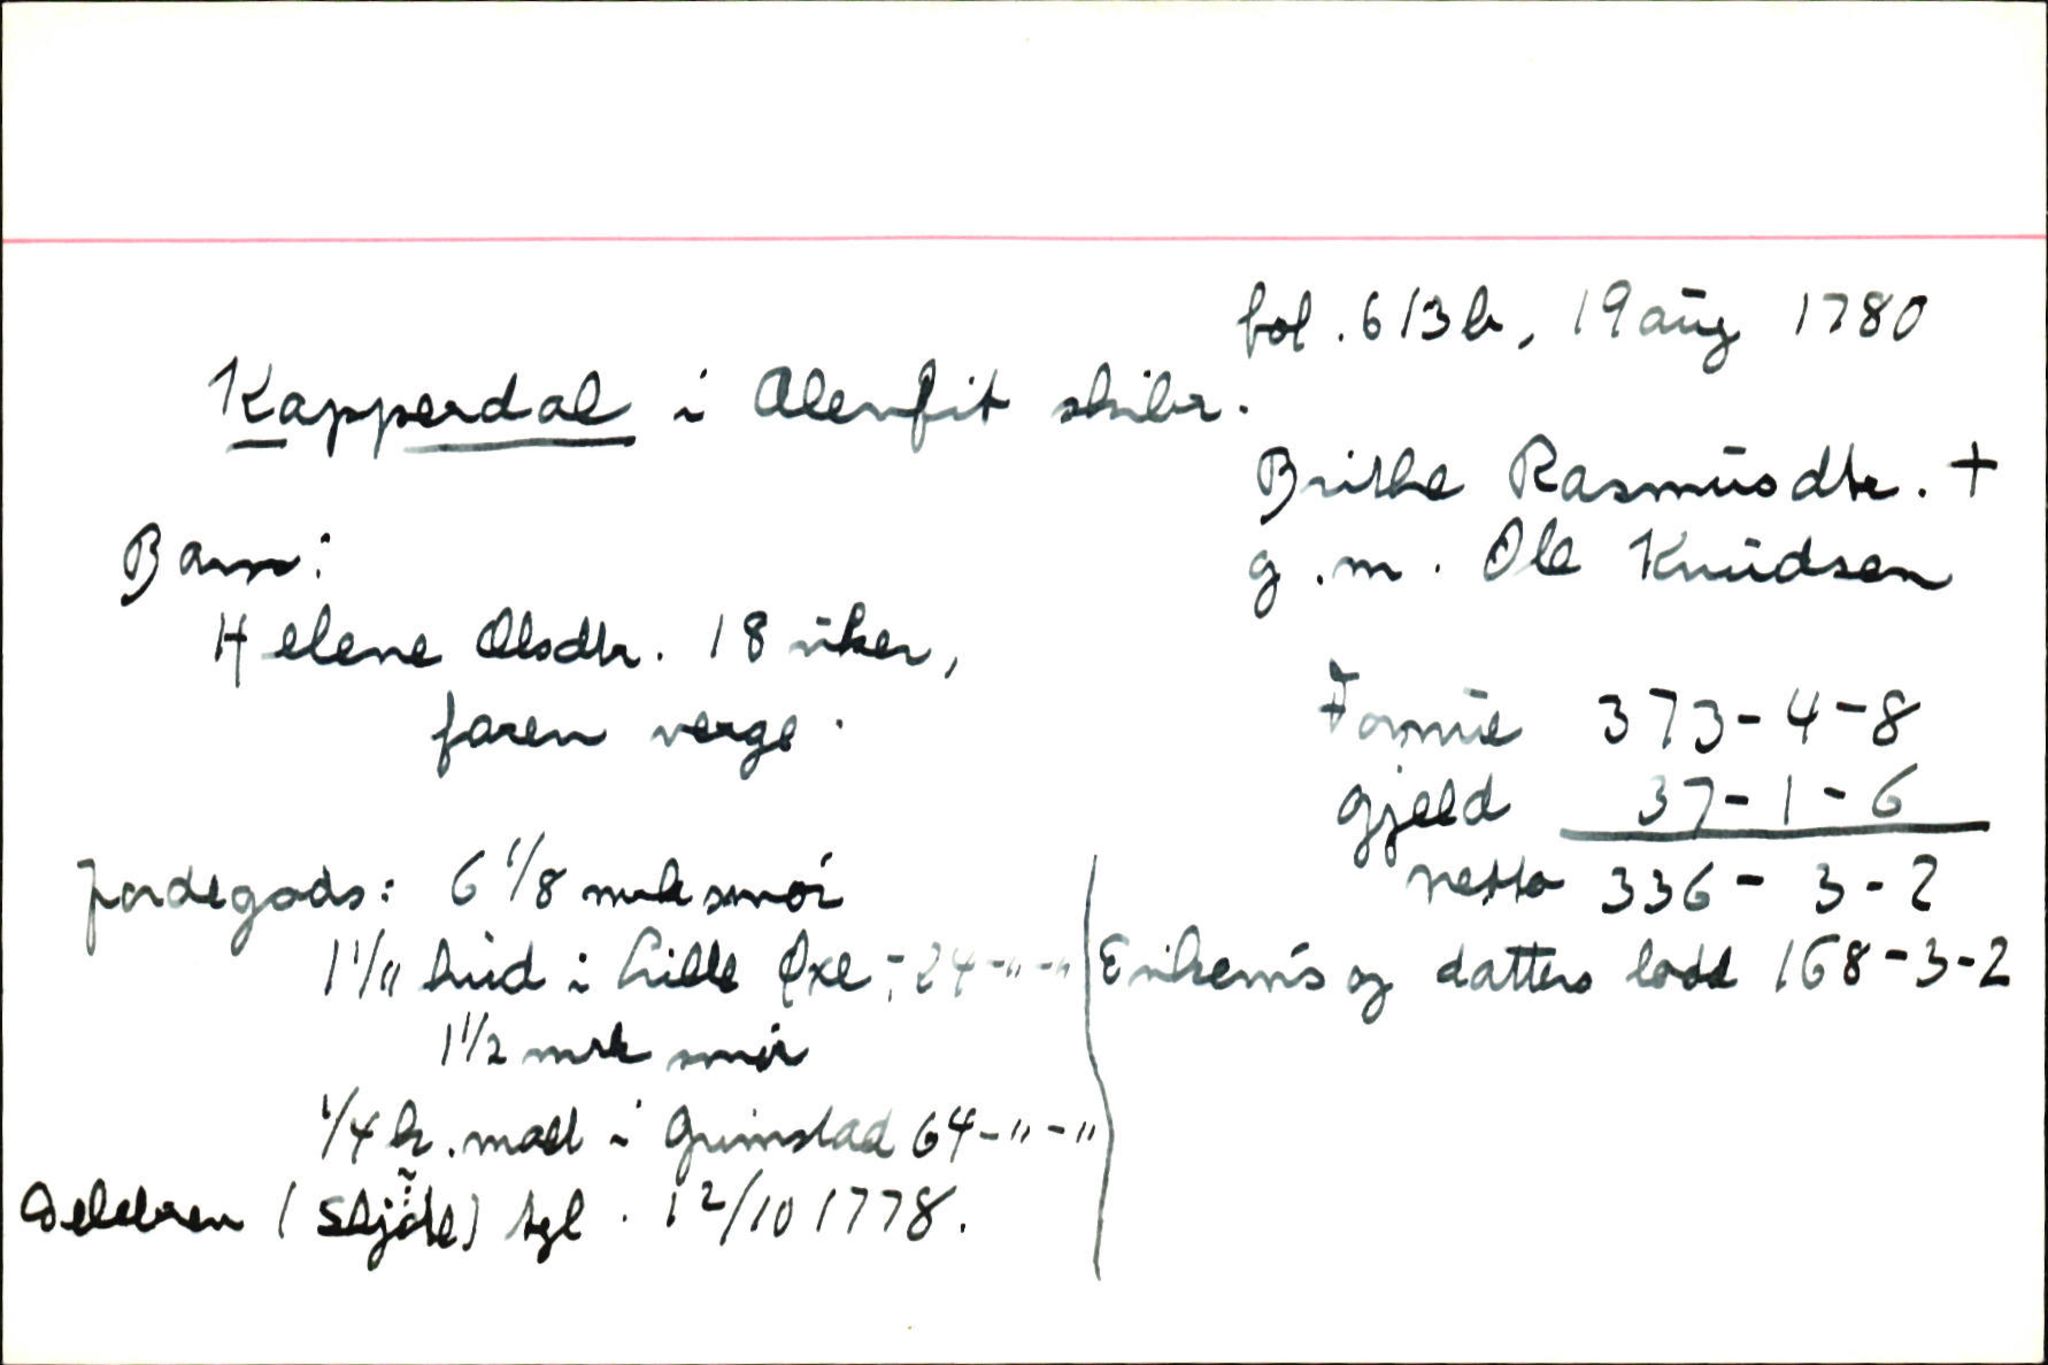 fol. 613b, 19 aug 1780
Kapperdal i Alenfit skibr.
Brithe Rasmusdtr. +
g.m. Ole Knudsen
Barn:
Helene Olsdtr. 18 uker,
faren verge.
Formue 373-4-8
gjeld 37-1-6
netto 336-3-2
Enkem's og datters lodd 168-3-2
Jordegods: 6 1/8 mrk smør
1 1/" hud i Lille Øxe, -24-"-"
1 1/2 mrk smør
1/4 h. malt i Grimstad 64-"-"
(Skjöte) tgl. 12/10 1778.